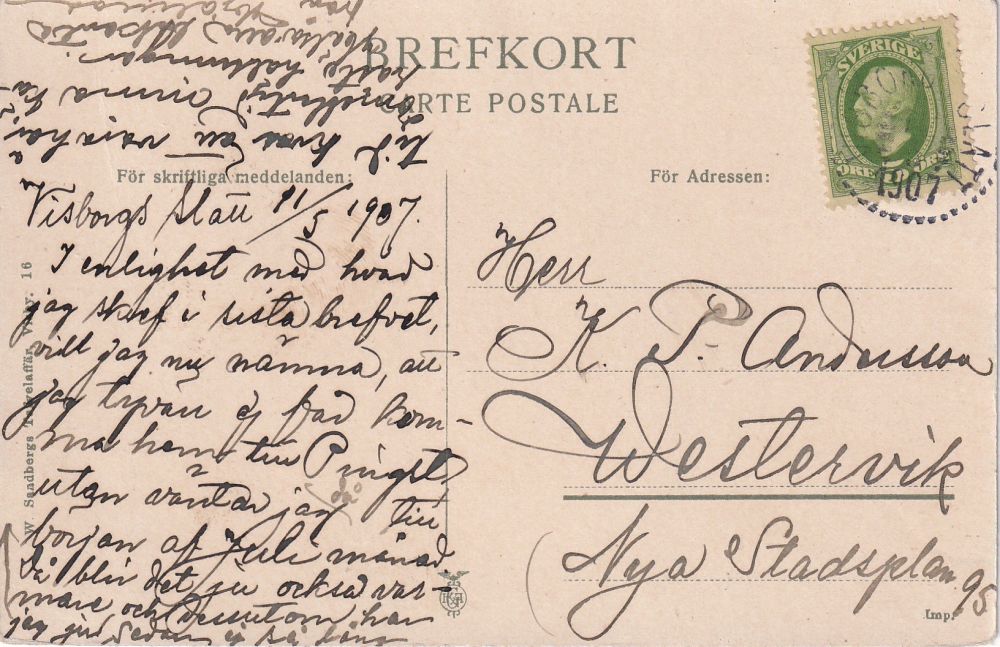 BREFKORT
CARTE POSTALE
För skriftliga meddelanden:
För Adressen:
SVERIGE
1907
Visborgs slätt 11/5 1907.
I enlighet med hvad
jag skref i sista brefvet,
vill jag nu nämna, att
jag tyvärr ej får kom-
ma hem till Pingst
utan väntar jag till
början af Juli månad.
Då blir det ju också var-
mare och dessutom har
jag ju sedan ej så långt
till
Herr
K. P. Andersson
Westervik
Nya Stadsplan 95.
W. Sandbergs Visby. 16
Imp.